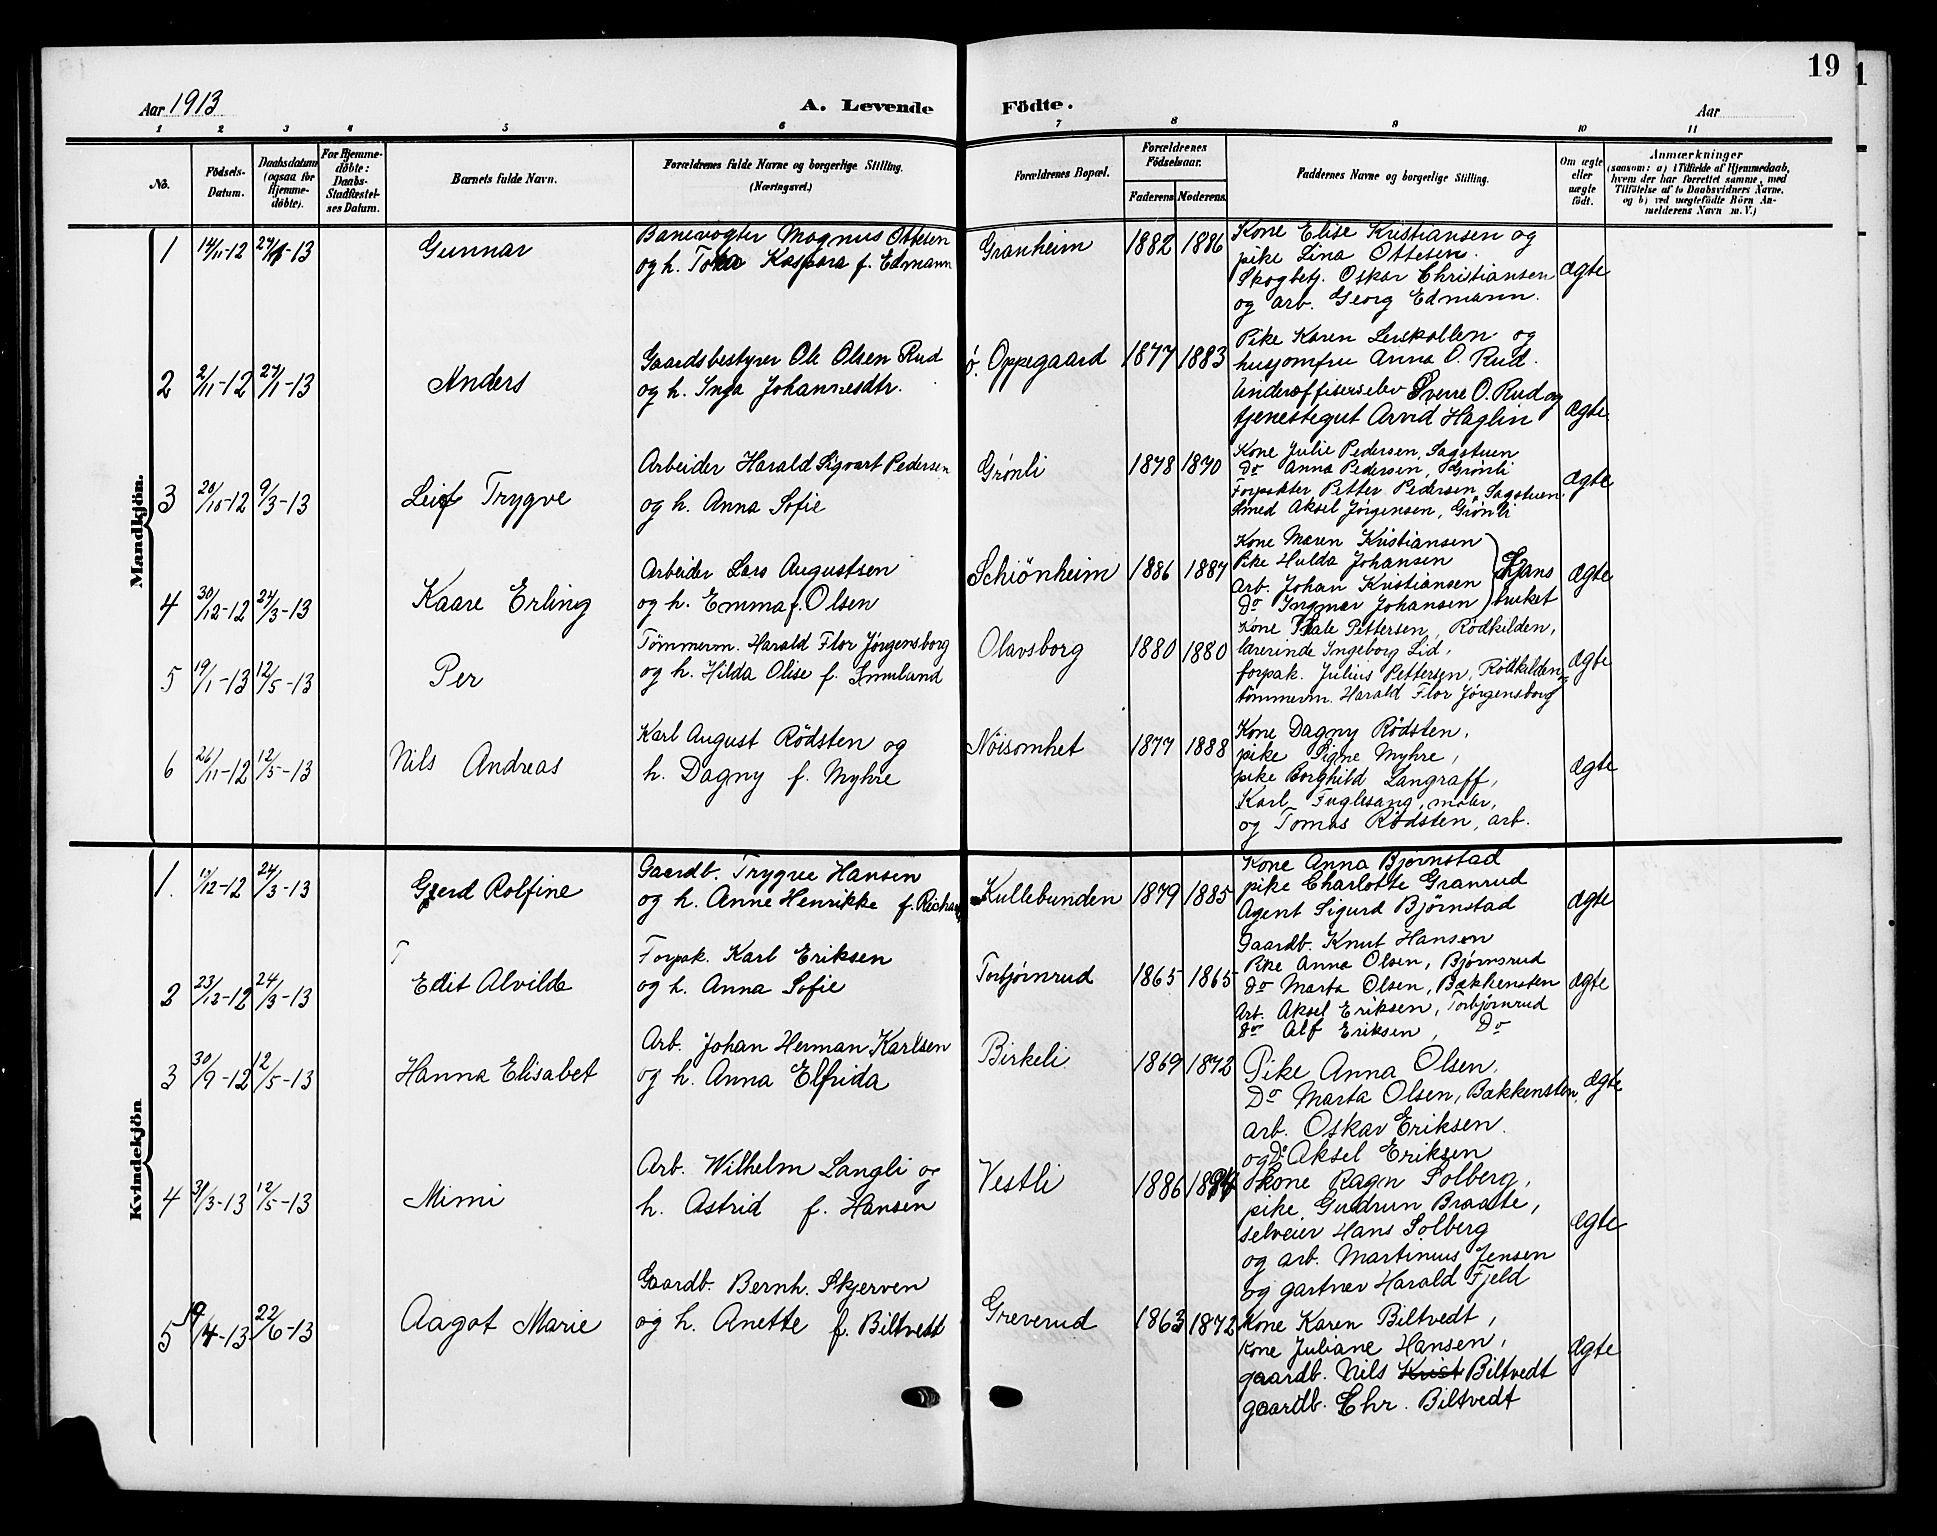 19
Aar 1913
A. Levende Födte.
Aar
1 2 3 4 5 6 7 8 9 10 11
No.
Födsels-Datum.
Daabsdatum (ogsaa for Hjemme-döbte).
For Hjemme-döbte: Daabs-Stadfæstel-ses Datum.
Barnets fulde Navn.
Forældrenes fulde Navne og borgerlige Stilling. (Næringsvei.)
Forældrenes Bopæl.
Forældrenes Födselsaar.
Faderens Moderens
Faddernes Navne og borgerlige Stilling.
Om ægte eller uægte födt.
Anmærkninger
(saasom: a) i Tilfælde af Hjemmedaab,
hvem der har forrettet samme, med
Tilföielse af to Daabsvidners Navne,
og b) ved uægtefödte Börn An-
melderens Navn m. V.)
Mandkjön.
1 14/11-12 27/1-13 Gunnar
Banevogter Magnus Ottesen
og h. Kaspara f. Edmann
Granheim 1882 1886
Kone Elise Kristiansen og
pike Lina Ottesen.
Skogbetj. Oskar Christiansen
og arb. Georg Edmann.
Ægte
2 2/11-12 27/1-13 Anders
Gaardsbestyrer Ole Olsen Rud
og h. Inga Johannesdtr.
ø. Oppegaard 1877 1883
Pike Karen Lerskallen og
husjomfru Anna O. Rud.
Underoffiserselev Sverre O. Rud og
tjenestegut Arvid Haglin
Ægte
3 20/10-12 9/3-13 Leif Trygve
Arbeider Harald Sigvart Pedersen
og h. Anna Sofie
Grønli 1878 1870
Kone Julie Pedersen, Sagstuen
Do Anna Pedersen, Grønli
Forpakter Petter Pedersen, Sagstuen
Smed Aksel Jørgensen, Grønli
Ægte
4 30/12-12 24/3-13 Kaare Erling
Arbeider Lars Augustsen
og h. Emma f. Olsen
Schiönheim 1886 1887
Kone Maren Kristiansen
Pike Hulda Johansen
Arb. Johan Kristiansen
Do Ingmar Johansen
Ljans bruket
Ægte
5 19/1-13 12/5-13 Per
Tömmerm. Harald Flor Jørgensborg
og h. Hilda Olise f.
Olavsborg 1880 1880
Kone Thale Pettersen, Rödkilden,
lærerinde Ingeborg Lid,
forpak. Julius Pettersen, Rödkilden,
tömmerm. Harald Flor Jørgensborg
Ægte
6 26/11-12 12/5-13 Nils Andreas
Karl August Rödsten og
h. Dagny f. Myhre
Nøisomhet 1877 1888
Kone Dagny Rødsten,
pike Signe Myhre,
pike Borghild Langraff,
Karl Fuglesang, maler,
og Tomas Rødsten, arb.
Ægte
Kvindekjön
1. 10/12-12 24/3-13 Gerd Rolfine
Gaardb. Trygve Hansen
og h. Anne Henrikke f.
Kullebunden 1879 1885
Kone Anna Bjørnstad
pike Charlotte Granrud
Agent Sigurd Bjørnstad
Gaardb. Knut Hansen
Ægte
2 23/12-12 24/3-13 Edit Alvilde
Forpak. Karl Eriksen
og h. Anna Sofie
Torbjørnrud 1865 1865
Pike Anna Olsen, Bjørnsrud
do Marta Olsen, Bækkensten
Arb. Aksel Eriksen, Torbjørnrud
do Alf Eriksen, Do
Ægte
3 30/9-12 12/5-13 Hanna Elisabet
Arb. Johan Herman Karlsen
og h. Anna Elfrida
Birkeli 1869 1872
Pike Anna Olsen,
Do Marta Olsen, Bækkensten,
arb. Oskar Eriksen.
og Do Aksel Eriksen
Ægte
4 31/3-13 12/5-13 Mimi
Arb. Wilhelm Langli og
h. Astrid f. Hansen
Vestli 1886
kone Ragn Solberg,
pike Gudrun Braate,
selveier Hans Solberg
og arb. Martinius Jensen
og gartner Harald Fjeld
Ægte
5 19/4-13 22/6-13 Aagot Marie
Gaardb. Bernh. Skjerven
og h. Anette f. Biltvedt
Greverud 1863 1872
Kone Karen Biltvedt,
kone Juliane Hansen,
gaardb. Nils Krist Biltvedt
gaardb. Chr. Biltvedt
Ægte